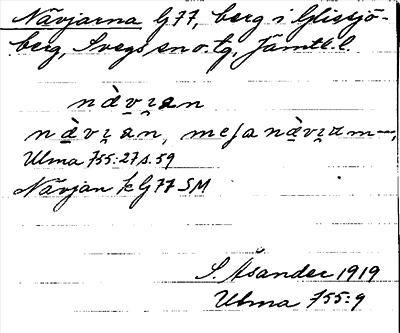 Nävjarna G77, berg i Glissjö-
berg, Svegs sn o. tg, Jämtl. l.
nàvıan
nàvıan, mesanàvıam—,
Ulma 755:27 s. 59
Nävjan k G77 SM
S. Åsander 1919
Ulma 755:9